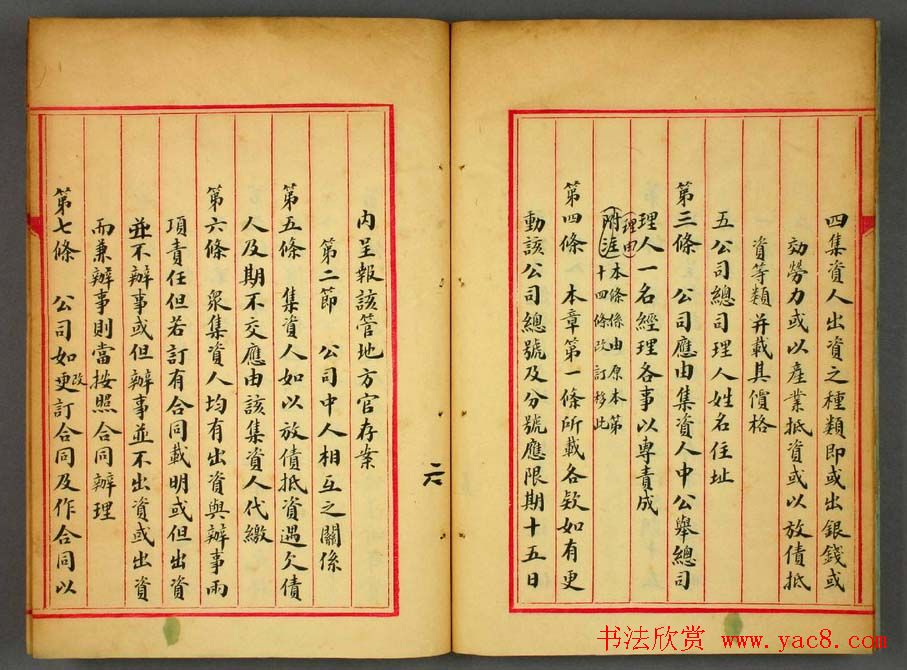 四集資人出資之種類即或出銀錢或
効勞力或以產業抵資或以放債抵
資等類并載其價格
五公司總司理人姓名住址
第三條　公司應由集資人中公舉總司
理人一名經理各事以專責成
理由
附注本條係由原本第
十四條改訂移此
第四條　本章第一條所載各欵如有更
動該公司總號及分號應限期十五日
二六
內呈報該管地方官存案
第二節　公司中人相互之關係
第五條　集資人如以放債抵資遇欠債
人及期不交應由該集資人代繳
第六條　衆集資人均有出資與辦事兩
項責任但若訂有合同載明或但出資
並不辦事或但辦事並不出資或出資
而兼辦事則當按照合同辦理
第七條　公司如更改訂合同及作合同以
书法欣赏 www.yac8.com